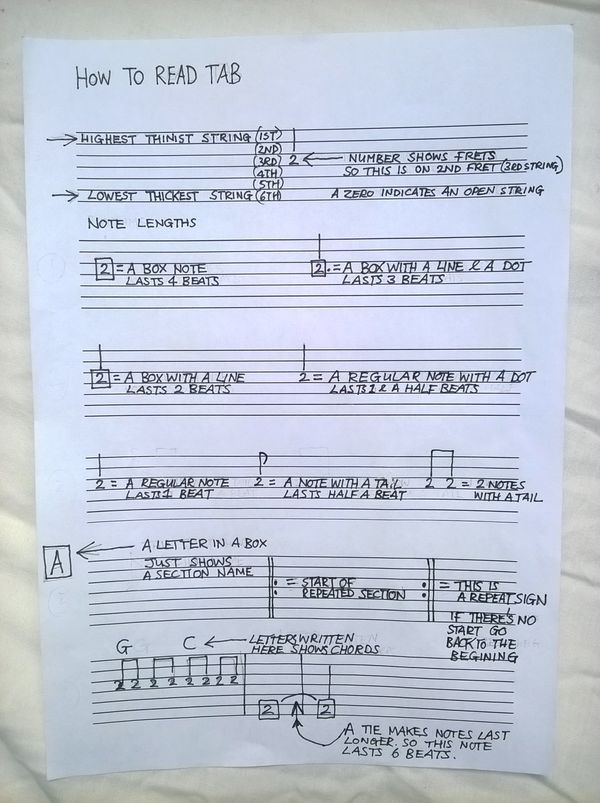 HOW TO READ TAB
HIGHEST THINIST STRING (1ST)
(2ND)
(3RD) 2 NUMBER SHOWS FRETS
(4TH) SO THIS IS ON 2ND FRET (3RD STRING)
(5TH)
LOWEST THICKEST STRING (6TH) A ZERO INDICATES AN OPEN STRING
NOTE LENGTHS
2 = A BOX NOTE
LASTS 4 BEATS
2. = A BOX WITH A LINE & A DOT
LASTS 3 BEATS
2 = A BOX WITH A LINE
LASTS 2 BEATS
2 = A REGULAR NOTE WITH A DOT
LASTS 1 & A HALF BEATS
2 = A REGULAR NOTE
LASTS 1 BEAT
2 = A NOTE WITH A TAIL
LASTS HALF A BEAT
2 2 = 2 NOTES
WITH A TAIL
A
A LETTER IN A BOX
JUST SHOWS
A SECTION NAME
= START OF
REPEATED SECTION
= THIS IS
A REPEAT SIGN
IF THERE'S NO
START GO
BACK TO THE
BEGINING
G C LETTERS WRITTEN
HERE SHOWS CHORDS
2 2 2 2 2 2 2 2
2 2
A TIE MAKES NOTES LAST
LONGER. SO THIS NOTE
LASTS 6 BEATS.